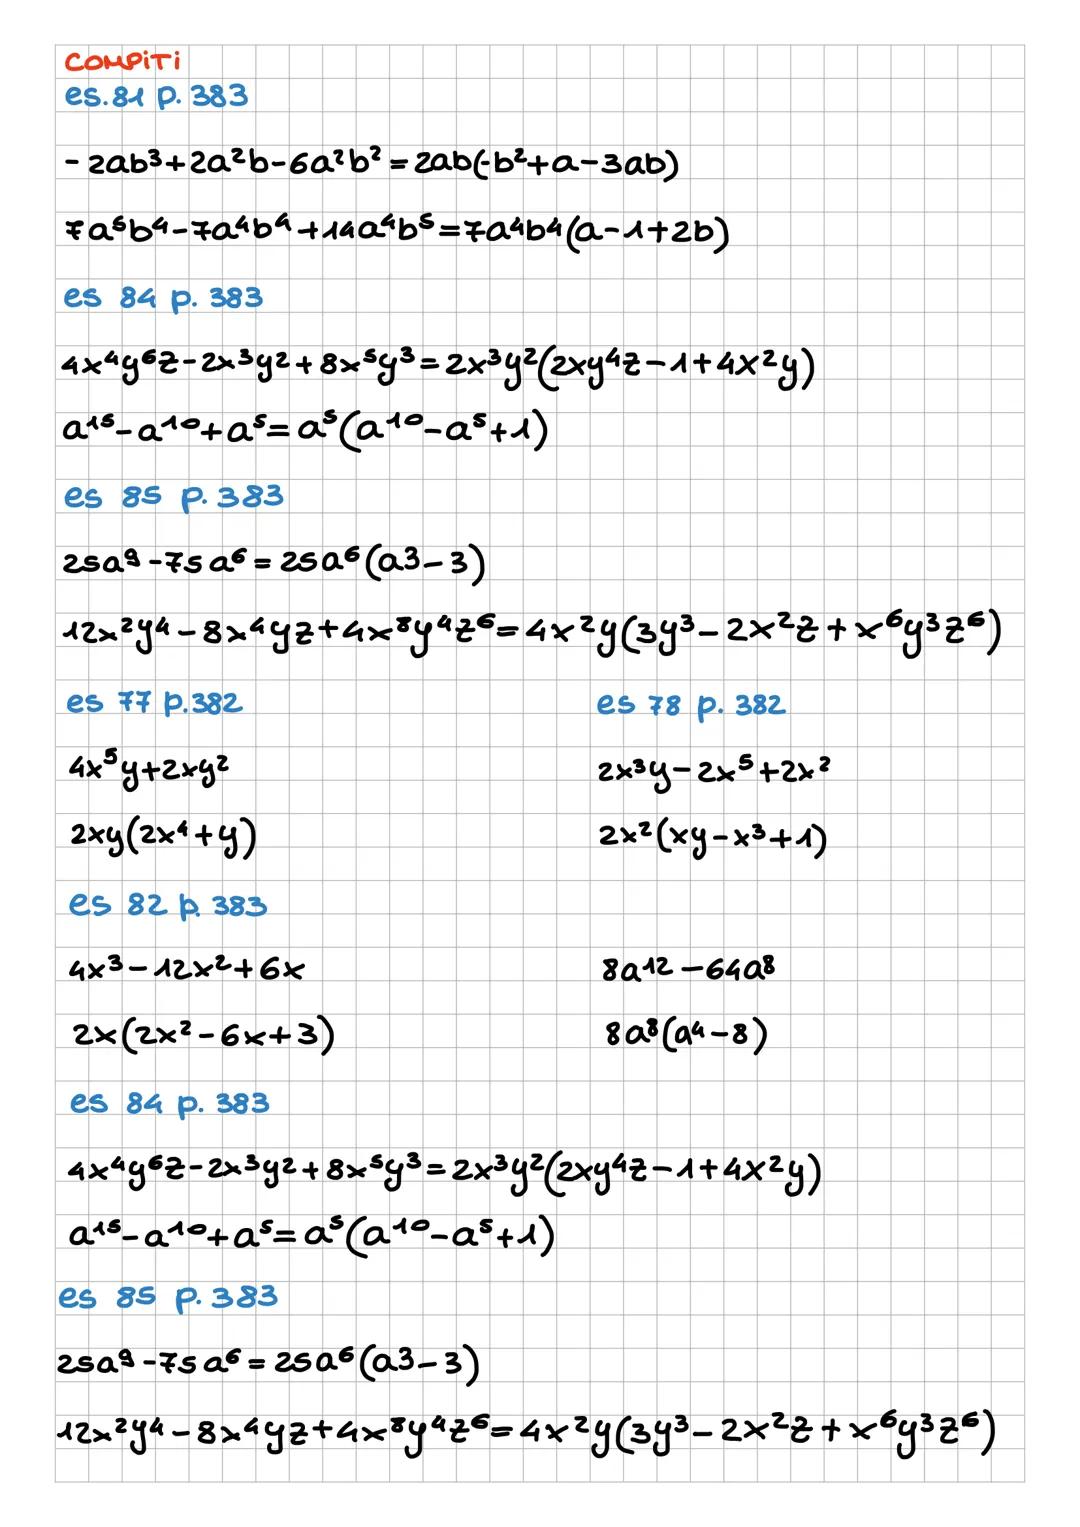 COMPiTi
es.81 p. 383
- 2ab³+2a²b-6a²b² = 2ab(-b²+a-3ab)
7a⁵b⁴-7a⁴b⁴+14a⁴b⁵=7a⁴b⁴(a-1+2b)
es 84 p. 383
4x⁴y⁶z-2x³y²+8x⁵y³=2x³y²(2xy⁴z-1+4x²y)
a¹⁵-a¹⁰+a⁵=a⁵(a¹⁰-a⁵+1)
es 85 p. 383
25a⁹-75a⁶=25a⁶(a3-3)
12x²y⁴-8x⁴yz+4x⁸y⁴z⁶=4x²y(3y³-2x²z+x⁶y³z⁶)
es 77 p.382
es 78 p. 382
4x⁵y+2xy²
2x³y-2x⁵+2x²
2xy(2x⁴+y)
2x²(xy-x³+1)
es 82 p. 383
4x³-12x²+6x
8a¹²-64a⁸
2x(2x²-6x+3)
8a⁸(a⁴-8)
es 84 p. 383
4x⁴y⁶z-2x³y²+8x⁵y³=2x³y²(2xy⁴z-1+4x²y)
a¹⁵-a¹⁰+a⁵=a⁵(a¹⁰-a⁵+1)
es 85 p. 383
25a⁹-75a⁶=25a⁶(a3-3)
12x²y⁴-8x⁴yz+4x⁸y⁴z⁶=4x²y(3y³-2x²z+x⁶y³z⁶)